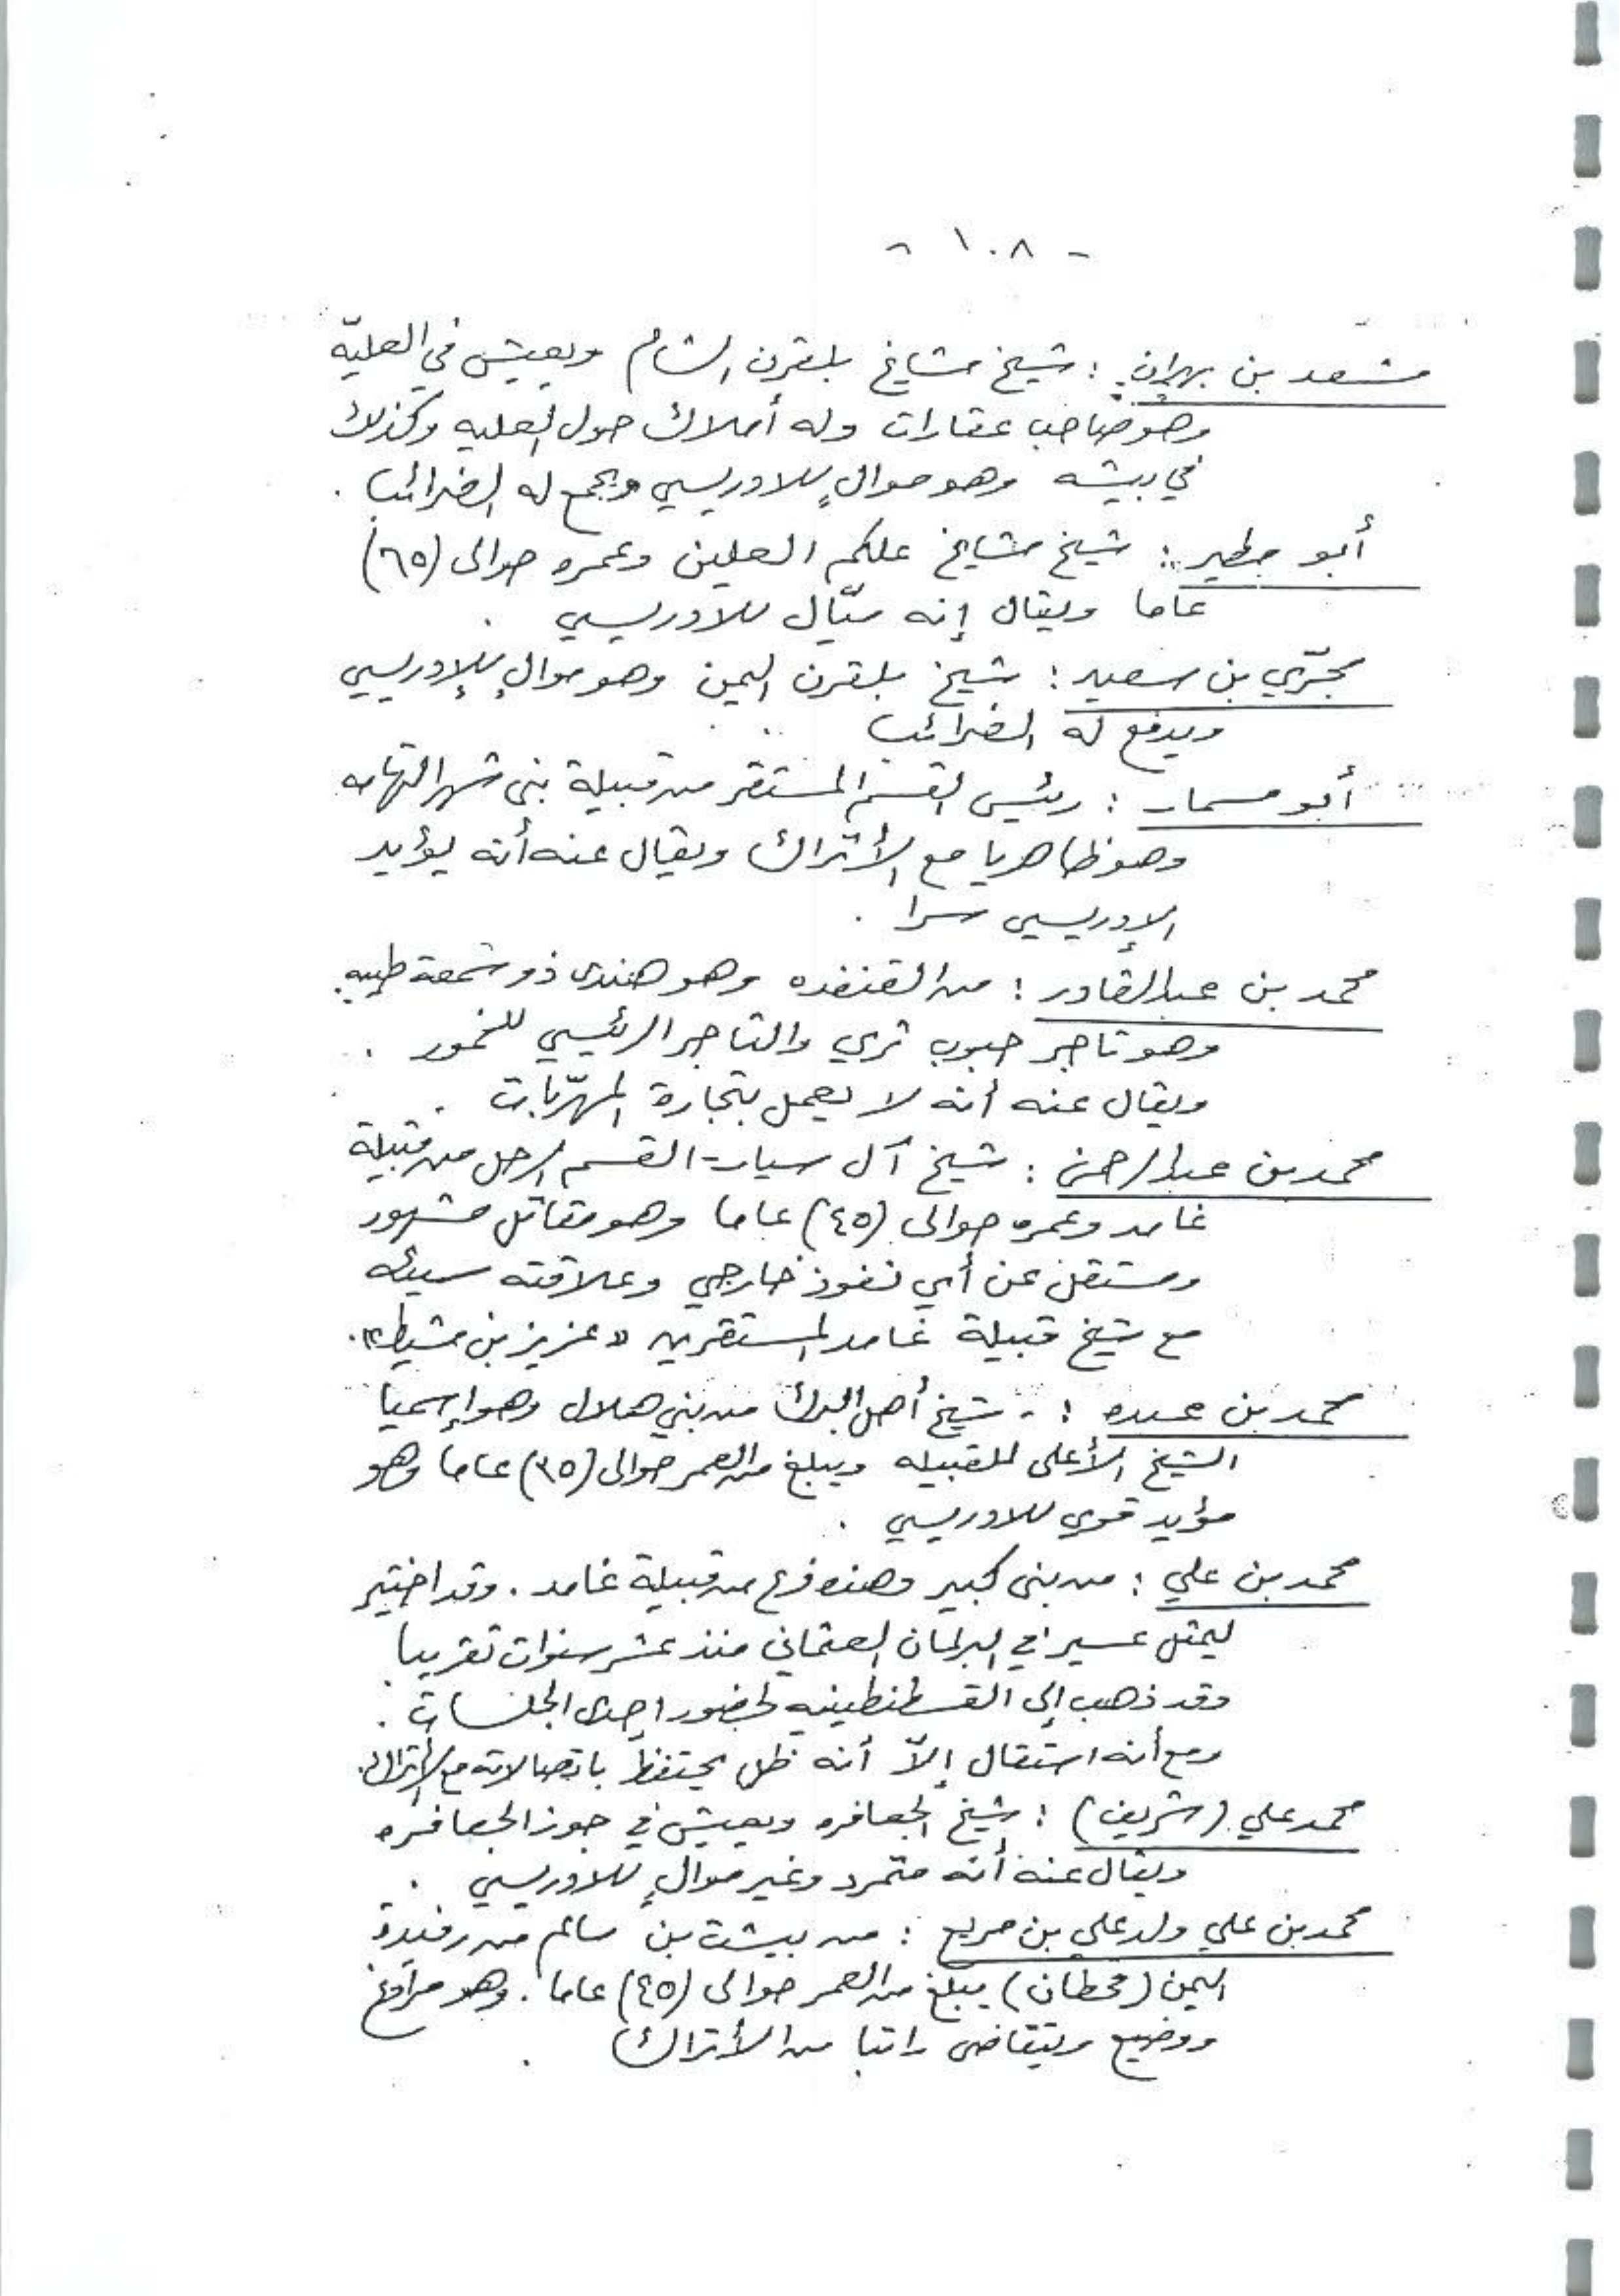 - ١٠٨ -
مسعد بن بهران : شيخ مشايخ بلقرن الشام ويعيش في العليّه
وهو صاحب عقارات وله أملاك حول العليه وكذلك
في بيشه وهو موالٍ للادريسي ويجمع له الضرائب .
أبو مطير : شيخ مشايخ علكم العلين وعمره حوالى (٦٥)
عاما ويقال إنه ميّال للادريسي .
مجرّي بن سعيد : شيخ بلقرن اليمن وهو موالٍ للإدريسي
ويدفع له الضرائب
أبو مسمار : رئيس القسم المستقر من قبيلة بنى شهر التهامه
وهو ظاهريا مع الأتراك ويقال عنه أنه يؤيد
الإدريسي سرا .
محمد بن عبدالقادر : من القنفذه وهو هندى ذو سمعة طيبه
وهو تاجر حبوب ثري والتاجر الرئيسي للخمور .
ويقال عنه أنه لا يعمل بتجارة المهرّبات .
محمد بن عبدالرحمن : شيخ آل سيار - القسم الرحل من قبيلة
غامد وعمره حوالى (٤٥) عاما وهو مقاتل مشهور
ومستقل عن أي نفوذ خارجي وعلاقته سيئه
مع شيخ قبيلة غامد المستقرين « عزيز بن مشيط » .
محمد بن عبده : - شيخ أهل البرك من بني هلال وهو إسميا
الشيخ الأعلى للقبيله ويبلغ من العمر حوالى (٣٥) عاما وهو
مؤيد قوي للادريسي .
محمد بن علي : من بنى كبير وهذه فرع من قبيلة غامد . وقد اختير
ليمثل عسير في البرلمان العثماني منذ عشر سنوات تقريبا .
وقد ذهب إلى القسطنطينيه لحضور إحدى الجلسات .
ومع أنه استقال إلاّ أنه ظل يحتفظ باتصالاته مع الأتراك .
محمد علي (شريف) : شيخ الجعافره ويعيش في جوز الجعافره
ويقال عنه أنه متمرد وغير موالٍ للادريسي .
محمد بن علي ولد علي بن مريع : من بيشت بن سالم من رفيدة
اليمن (قحطان) يبلغ من العمر حوالى (٤٥) عاما . وهو مراوغ
ووضيع ويتقاضى راتبا من الأتراك .